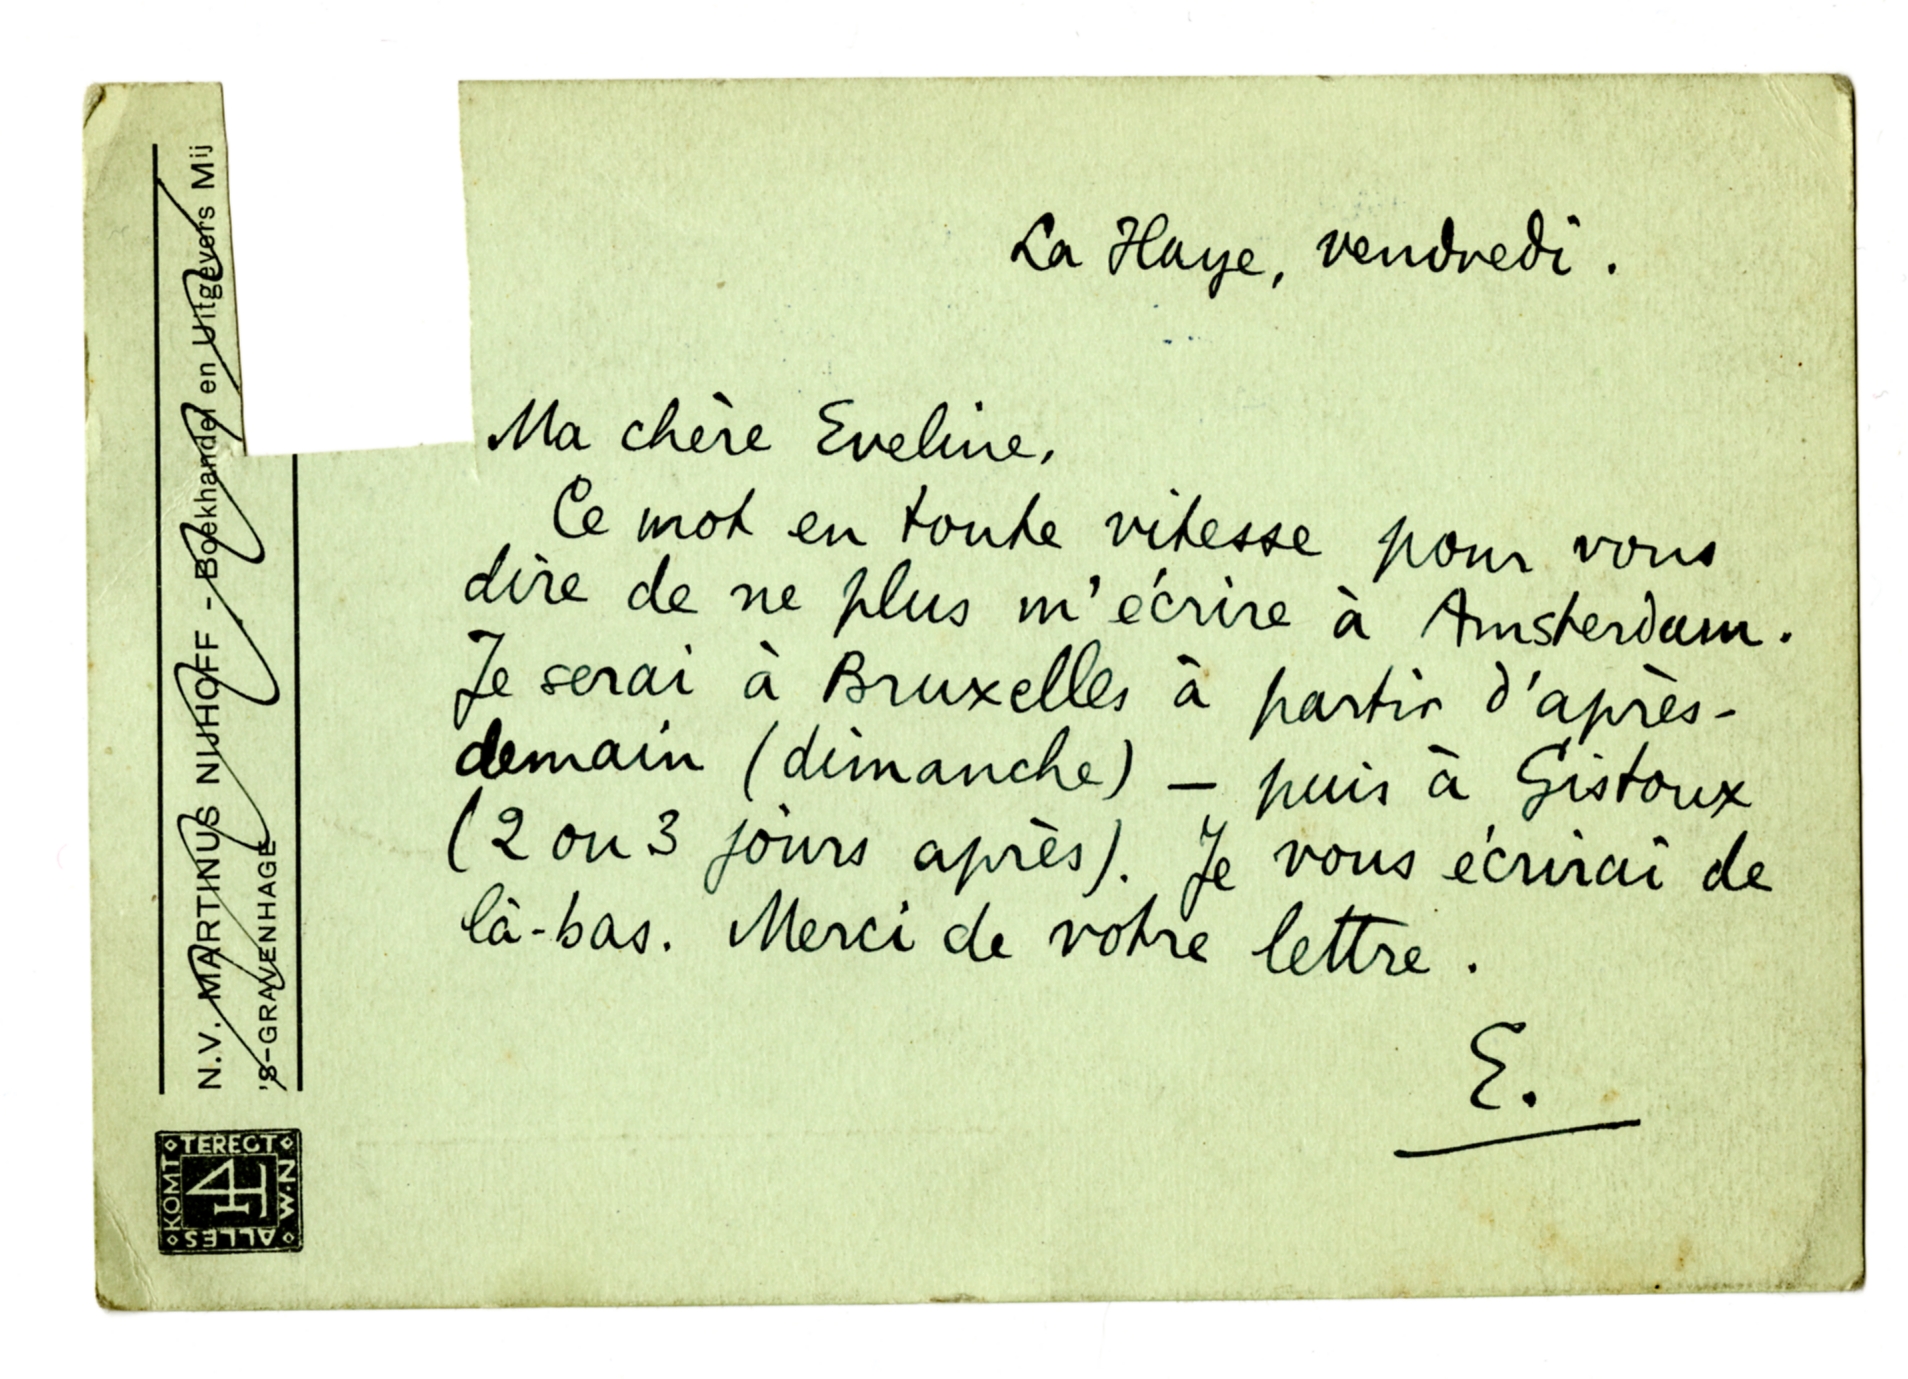 La Haye, vendredi.
Ma chère Eveline,
Ce mot en toute vitesse pour vous
dire de ne plus m'écrire à Amsterdam.
Je serai à Bruxelles à partir d'après-
demain (dimanche) — puis à Gistoux
(2 ou 3 jours après). Je vous écrirai de
là-bas. Merci de votre lettre.
E.
N.V. MARTINUS NIJHOFF - Boekhandel en Uitgevers Mij
'S-GRAVENHAGE
ALLES KOMT TEREGT
M.N